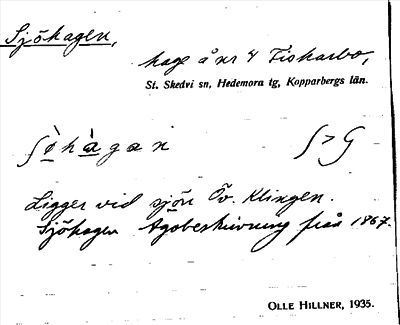 Sjöhagen,
hage å nr 4 Fiskarbo,
St. Skedvi sn, Hedemora tg, Kopparbergs län.
ʃö̀hàgan
Ligger vid sjön Öv. Klingen.
Sjöhagen Ägobeskrivning från 1867.
OLLE HILLNER, 1935.